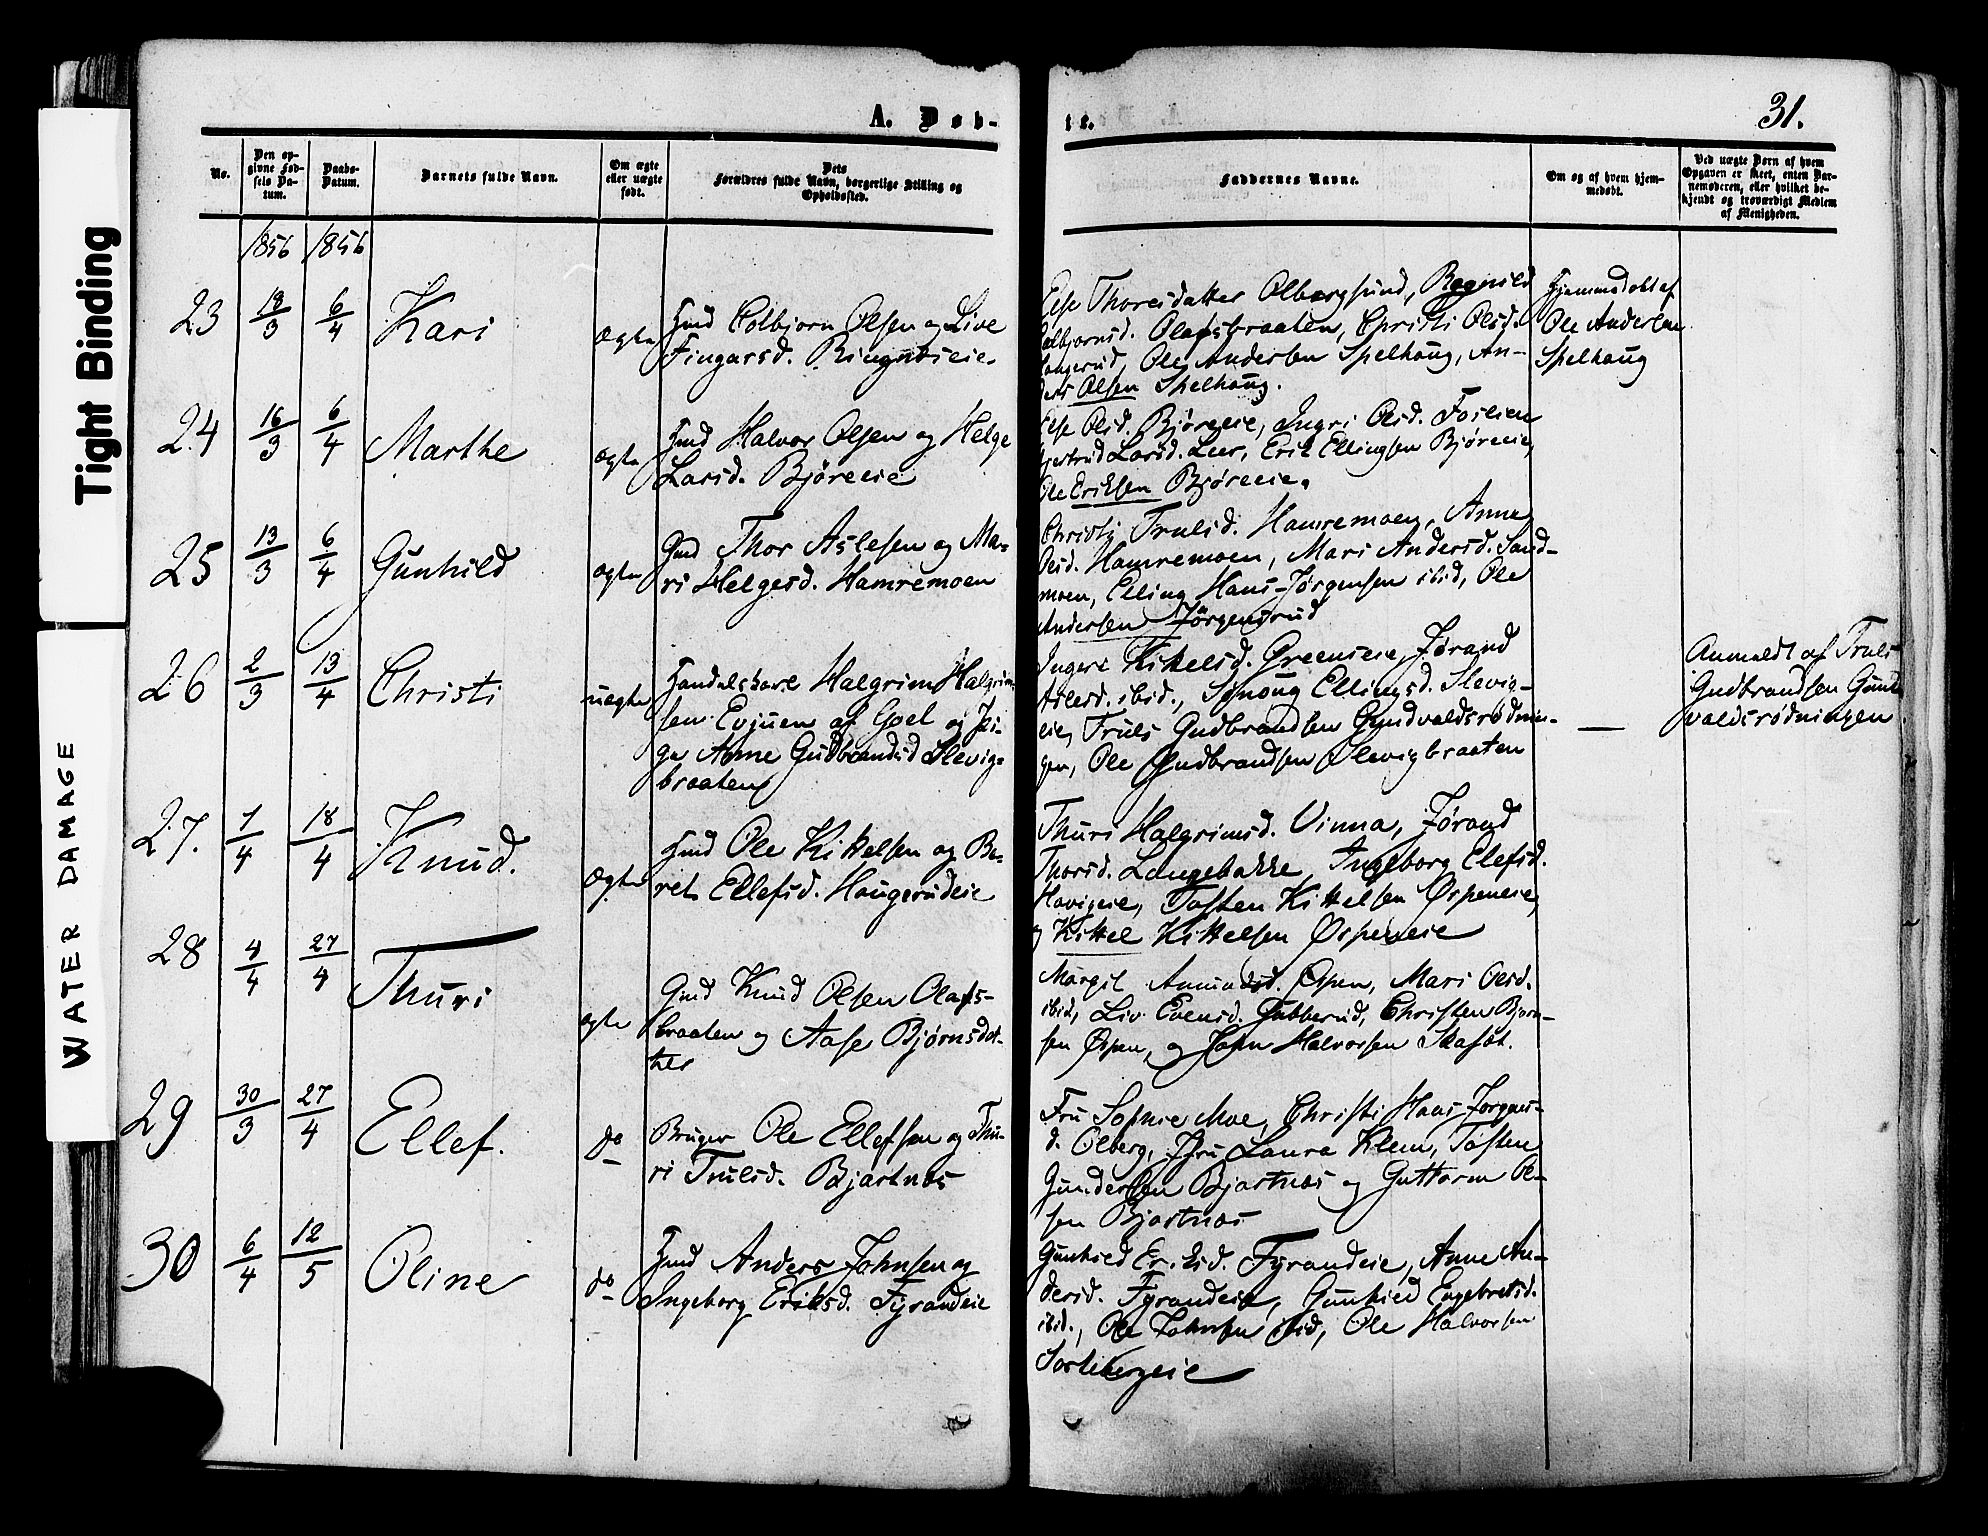 Tight Binding
WATER DAMAGE
A. Døb-
te.
31.
No.
Den op-
givne Fød-
sels Da-
tum.
Daabs-
Datum.
Barnets fulde Navn.
Om ægte
eller uægte
født.
Dets
Forældres fulde Navn, borgerlige Stilling og
Opholdssted.
Faddernes Navne.
Om og af hvem hjem-
medøbt.
Ved uægte Børn af hvem
Opgaven er skeet, enten Bar-
nemoderen, eller hvilket be-
kjendt og troværdigt Medlem
af Menigheden.
1856 1856
23 18/3 6/4 Kari ægte Hmd Colbjørn Olsen og Live
Fingarsd. Ringnæseie.
Else Thoresdatter Olbergsund, Regnild
Colbjørnsd. Olafsbraaten, Christi Olsd.
Ole Andersen Spelhaug, An-
ders Olsen Spelhaug.
Hjemmedøbt af
Ole Andersen
Spelhaug
24 16/3 6/4 Marthe ægte Hmd Halvor Olsen og Helge
Larsd. Bjøreeie
Else Olsd. Bjøreeie, Ingri Olsd. Foslien
Gjertrud Larsd. Leer, Erik Ellingsen Bjøreeie,
Ole Eriksen Bjøreeie.
25 13/3 6/4 Gunhild ægte Gmd Thor Aslesen og Ma-
ri Helgesd. Hamremoen
Christi Trulsd. Hamremoen, Anne
Olsd. Hamremoen, Mari Andersd. Sand-
moen, Elling Hans-Jørgensen ibid, Ole
Andersen Jørgensrud
26 2/3 13/4 Christi uægte Handelskarl Halgrim Halgrim-
sen Evjuen af Goel og Pi-
ge Anne Gudbrandsd Slevig-
braaten
Ingeri Kittelsd. Greenseie, Jørand
Aslesd. ibid., Synoug Ellingsd. Slevig-
eie, Truls Gudbrandsen Gundvaldsrødnin-
gen, Ole Gudbrandsen Slevigbraaten
—
Anmeldt af Truls
Gudbrandsen Gund
valdsrødningen
27. 1/4 18/4 Knud. Ægte Hmd Ole Kittelsen og Be-
ret Ellefsd. Haugerudeie
Thuri Halgrimsd. Vinna, Jørand
Thorsd. Langebakke, Ingeborg Elefsd.
Havigeie, Tosten Kittelsen Øspeneie,
og Kittel Kittelsen Øspeneie
28 4/4 27/4 Thuri ægte Gmd Knud Olsen Olafs-
braaten og Aase Bjørnsdat-
ter
Margit Amundsd. Øspen, Mari Olsd.
ibid, Liv Evensd. Gubberud, Christen Bjørn-
sen Øspen, og John Halvorsen Skaføt.
29 30/3 27/4 Ellef. do Bruger Ole Ellefsen og Thu-
ri Trulsd. Bjartnæs
Fru Sophie Moe, Christi Hans-Jørgens-
d. Olberg, Fru Laura Klem, Tosten
Gundersen Bjartnæs og Guttorm Ol-
sen Bjartnæs
30 6/4 12/5 Oline do Hmd Anders Johnsen og
Ingeborg Eriksd. Fyrandeie
Gunhild Eriksd. Fyrandeie, Anne An-
dersd. Fyrandeie, Gunhild Engebretsd.
ibid., Ole Johnsen ibid, Ole Halvorsen
Sortebergeie